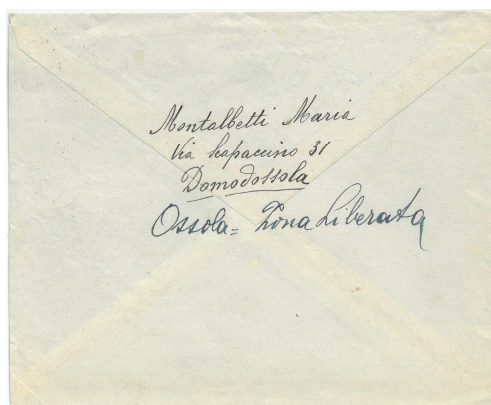 Montalbetti Maria
Via Scapaccino 31
Domodossola
Ossola = Zona Liberata